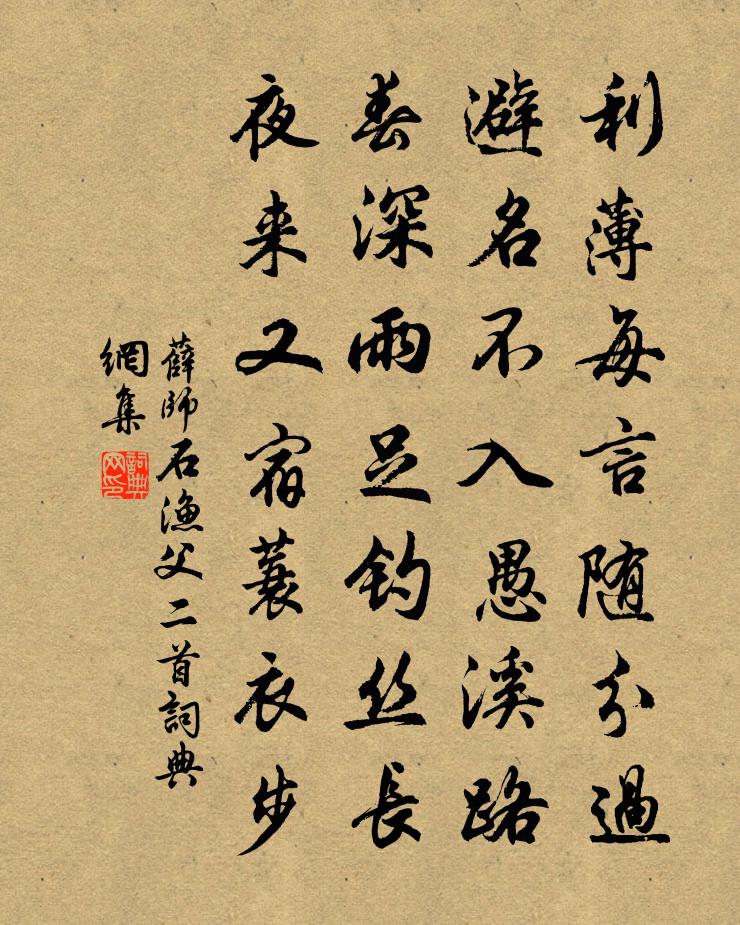 利薄每言随分過
避名不入愚溪路
春深雨足釣丝長
夜来又宿蓑衣步
薛師石漁父二首詞典
網集
詞典
网印